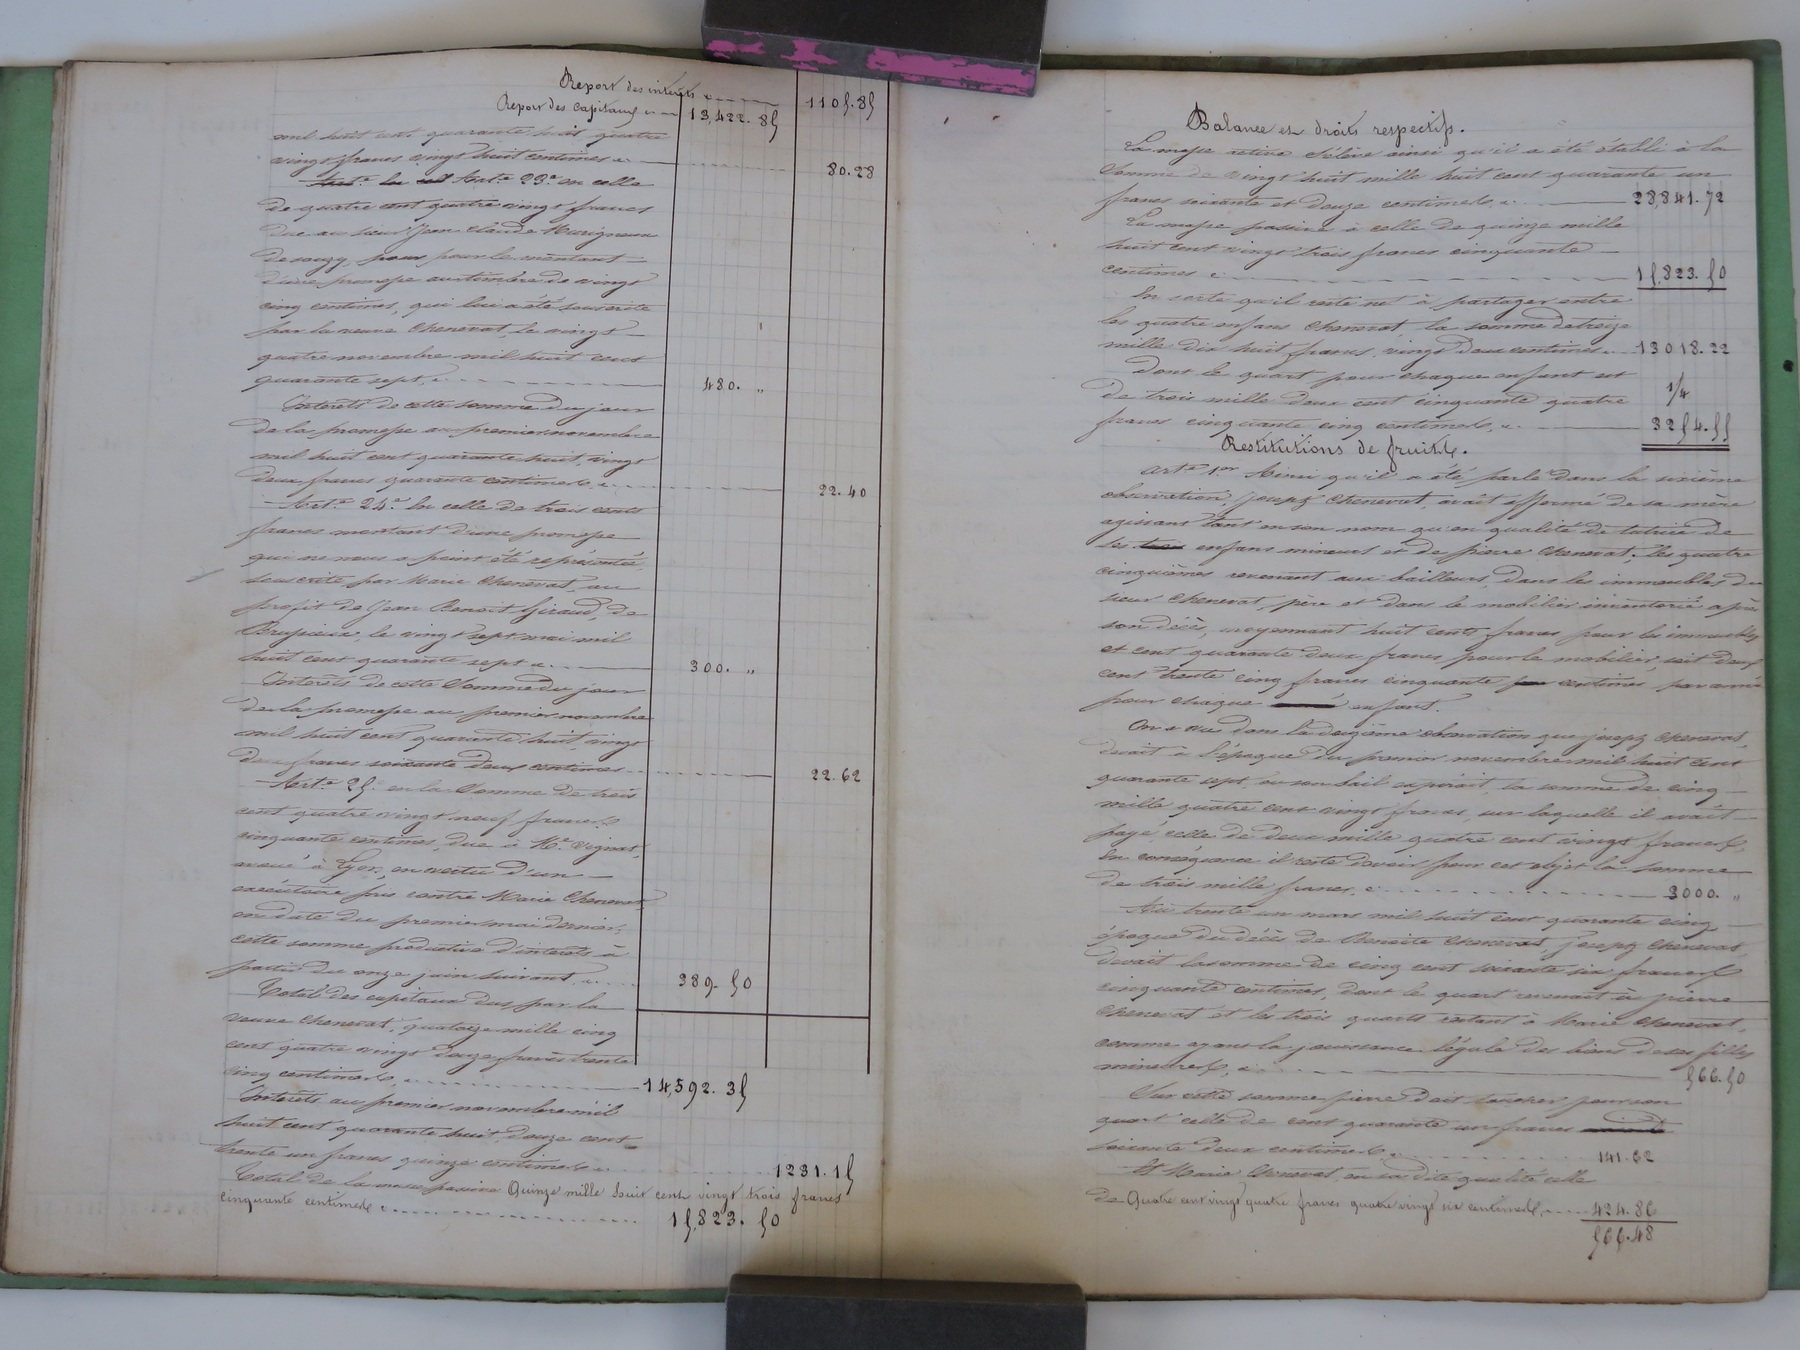 Report des intérêts 1105.85
Report des Capitaux 13,422.85
mil huit cent quarante huit quatre
vingt francs vingt huit centimes 80.28
Art.e 23.e en celle
de quatre cent quatre vingt francs
due au sieur Jean Claude
de Souzy, pour le montant
d'une promesse au timbre de vingt
cinq centimes, qui lui a été souscrite
par la veuve Chenevat, le vingt
quatre novembre mil huit cent
quarante sept, 480. "
Intérêts de cette somme du jour
de la promesse au premier novembre
mil huit cent quarante huit, vingt
deux francs quarante centimes 22.40
Art.e 24.e En celle de trois cents
francs montant d'une promesse
qui ne nous a point été représentée,
souscrite, par Marie Chenevat, au
profit de Jean Benoit Giraud, de
Brussieux, le vingt sept mai mil
huit cent quarante sept 300. "
Intérêts de cette Somme du jour
de la promesse au premier novembre
mil huit cent quarante huit, vingt
deux francs soixante deux centimes 22.62
Art.e 25. en la Somme de trois
cent quatre vingt neuf francs
cinquante centimes, due à M.e Vignat,
avoué à Lyon, en vertu d'un
exécutoire pris contre Marie Chenevat,
en date du premier mai dernier,
cette somme productive d'intérêts à
partir du onze juin suivant, 389. 50
Total des capitaux dus par la
veuve Chenevat, quatorze mille cinq
cent quatre vingt douze francs trente
cinq centimes, 14,592. 35
Intérêts au premier novembre mil
huit cent quarante huit, douze cent
trente un francs quinze centimes 1231.15
Total de la masse passive Quinze mille huit cent vingt trois francs
cinquante centimes 15,823. 50
Balance et droits respectifs.
La masse active s'élève ainsi qu'il a été établi à la
Somme de vingt huit mille huit cent quarante un
francs soixante et douze centimes, 28,841.72
La masse passive à celle de quinze mille
huit cent vingt trois francs cinquante
centimes 15,823. 50
En sorte qu'il reste net à partager entre
les quatre enfans Chenevat, la somme de treize
mille dix huit francs, vingt deux centimes 13018.22
Dont le quart pour chaque enfant est 1/4
de trois mille deux cent cinquante quatre
francs cinquante cinq centimes, 3254.55
Restitutions de fruits.
Art.e 1.er Ainsi qu'il a été parlé dans la sixième
observation, Joseph Chenevat, avait affermé de sa mère
agissant tant en son nom qu'en qualité de tutrice de
ses trois enfans mineurs et de pierre Chenevat, les quatre
cinquièmes revenant aux bailleurs, dans les immeubles du
sieur Chenevat, père et dans le mobilier inventorié après
son décès, moyennant huit cents francs pour les immeubles
et cent quarante deux francs pour le mobilier, soit deux
cent trente cinq francs cinquante centimes par année
pour chaque enfant.
On a vu dans la dixième observation que joseph Chenevat,
devait à l'époque du premier novembre mil huit cent
quarante sept, où son bail expirait, la somme de cinq
mille quatre cent vingt francs, sur laquelle il avait
payé, celle de deux mille quatre cent vingt francs,
En conséquence il reste devoir pour cet objet la somme
de trois mille francs, 3000. "
Au trente un mars mil huit cent quarante cinq
époque du décès de Benoite Chenevat, joseph Chenevat,
devait la somme de cinq cent soixante six francs
cinquante centimes, dont le quart revenait à pierre
Chenevat et les trois quarts restant à Marie Chenevat,
comme ayant la jouissance légale des biens de ses filles
mineures, 566.50
Sur cette somme pierre doit toucher pour son
quart celle de cent quarante un francs
soixante deux centimes 141.62
Et Marie Chenevat, en sa dite qualité celle
de Quatre cent vingt quatre francs quatre vingt six centimes, 424.86
566.48